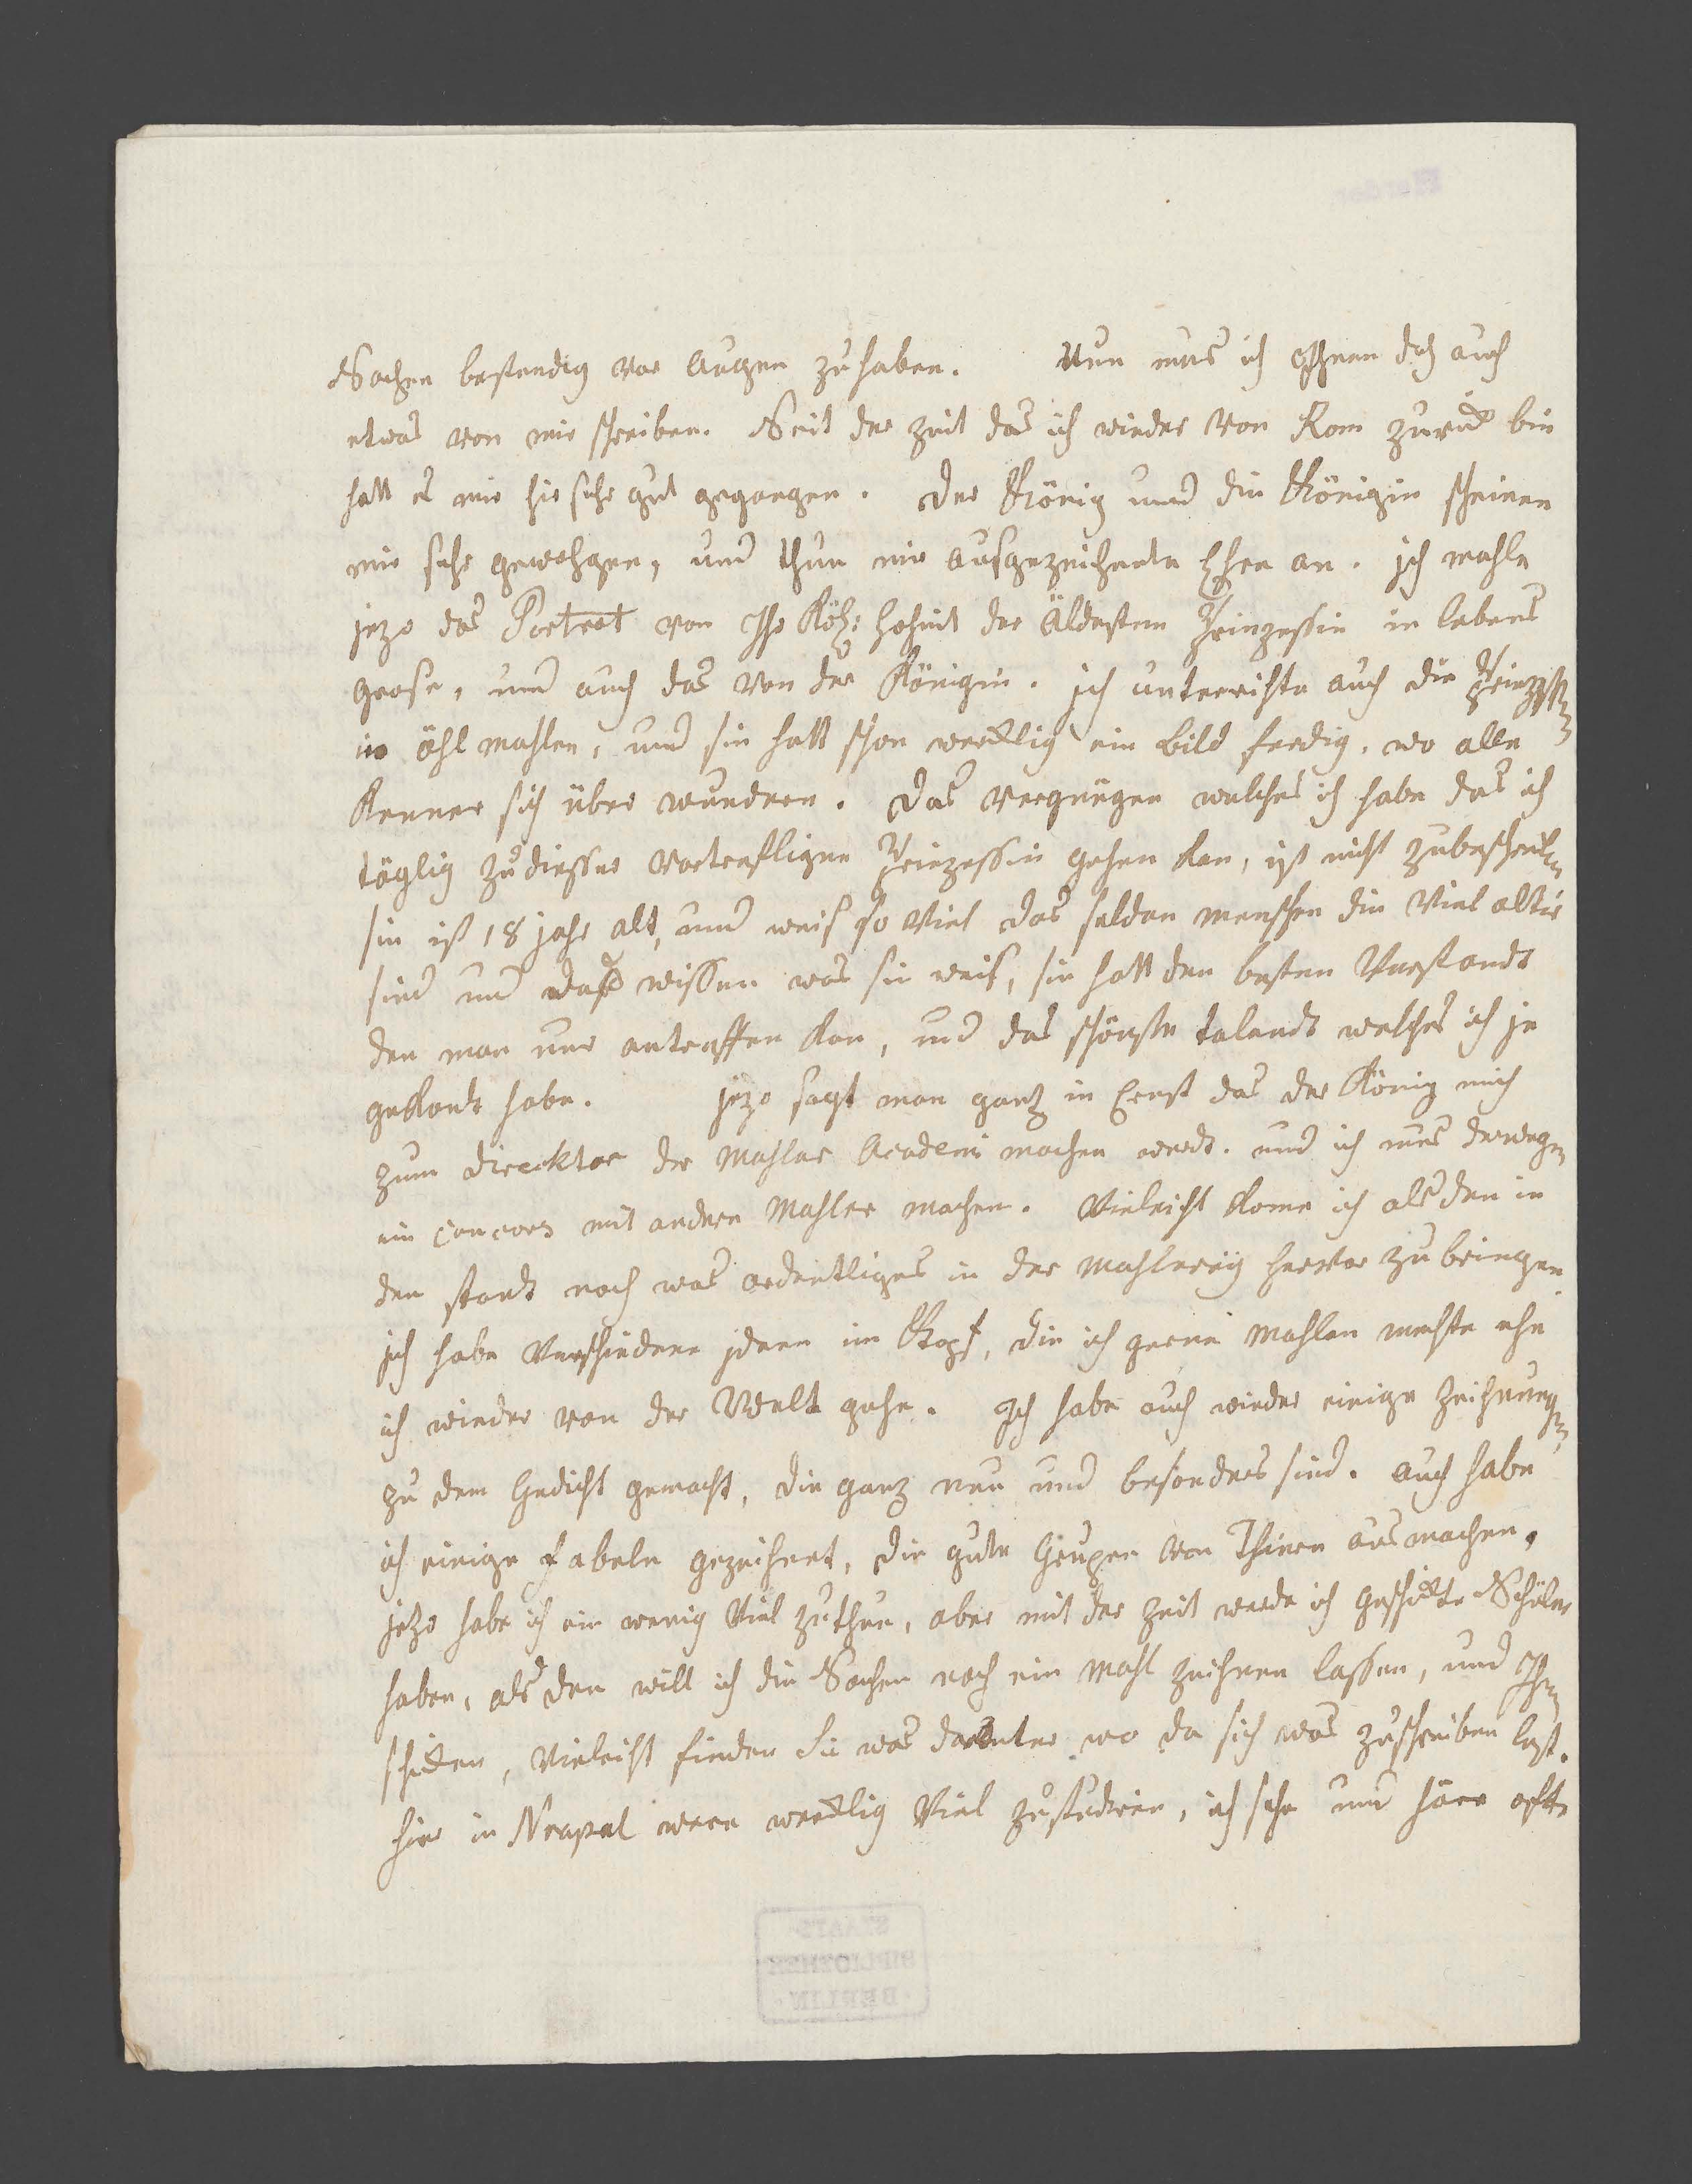 Sachen bestendig vor Augen zu haben. Nun mus ich Ihnen doch auch
etwas von mir schreiben. Seit der zeit das ich wieder von Rom zurück bin
hatt es mir hir sehr gut gegangen. Der König und die Königin scheinen
mir sehr gewohgen, und thun mir ausgezeichnete Ehre an. ich mahle
jezo das Portret von Ihr Kö: Hoheit der Äldesten Prinzessin in lebens
grose, und auch das von der Königin. ich unterrichte auch die Prinzessin
in öhl mahlen, und sie hatt schon wercklig ein bild ferdig, wo alle
Kenner sich über wundren. Das vergnügen welches ich habe das ich
täglig zu diesser vortrefligen Prinzessin gehen kan, ist nicht zubeschreiben
sie ist 18 jahr alt, und weis so viel das selden menschen die viel alter
sind und das wissen was sie weis, sie hatt den besten Verstandt
den man nur antreffen kan, und das schönste talendt welches ich je
gekandt habe. jezo sagt man ganz in Ernst das der König mich
zum Direcktor der Mahler Academi machen werdt. und ich mus derwegen
ein concors mit andren Mahler machen. Vieleicht kome ich als den in
den standt noch was ordentliges in der Mahlereÿ hervor zu bringen
ich habe verschiedene jdeen im Kopf, die ich gerne mahlen mechte ehe
ich wieder von der Welt gehe. Ich habe auch wieder einige zeichnungen
zu dem Gedicht gemacht, die ganz neu und besonders sind. auch habe
ich einige fabeln gezeichnet, die gute Grupen von Thiren ausmachen.
jetzo habe ich ein wenig viel zuthun, aber mit der zeit werde ich geschickte Schüler
haben, als den will ich die Sachen noch ein mahl zeichnen lassen, und Ihnen
schicken, vieleicht finden Sie was darunter wo da sich was zuschreiben lest.
hier in Neapel were wercklig viel zustudiren, ich sehe und höre oft
STAATS-
BIBLIOTHEK
BERLIN